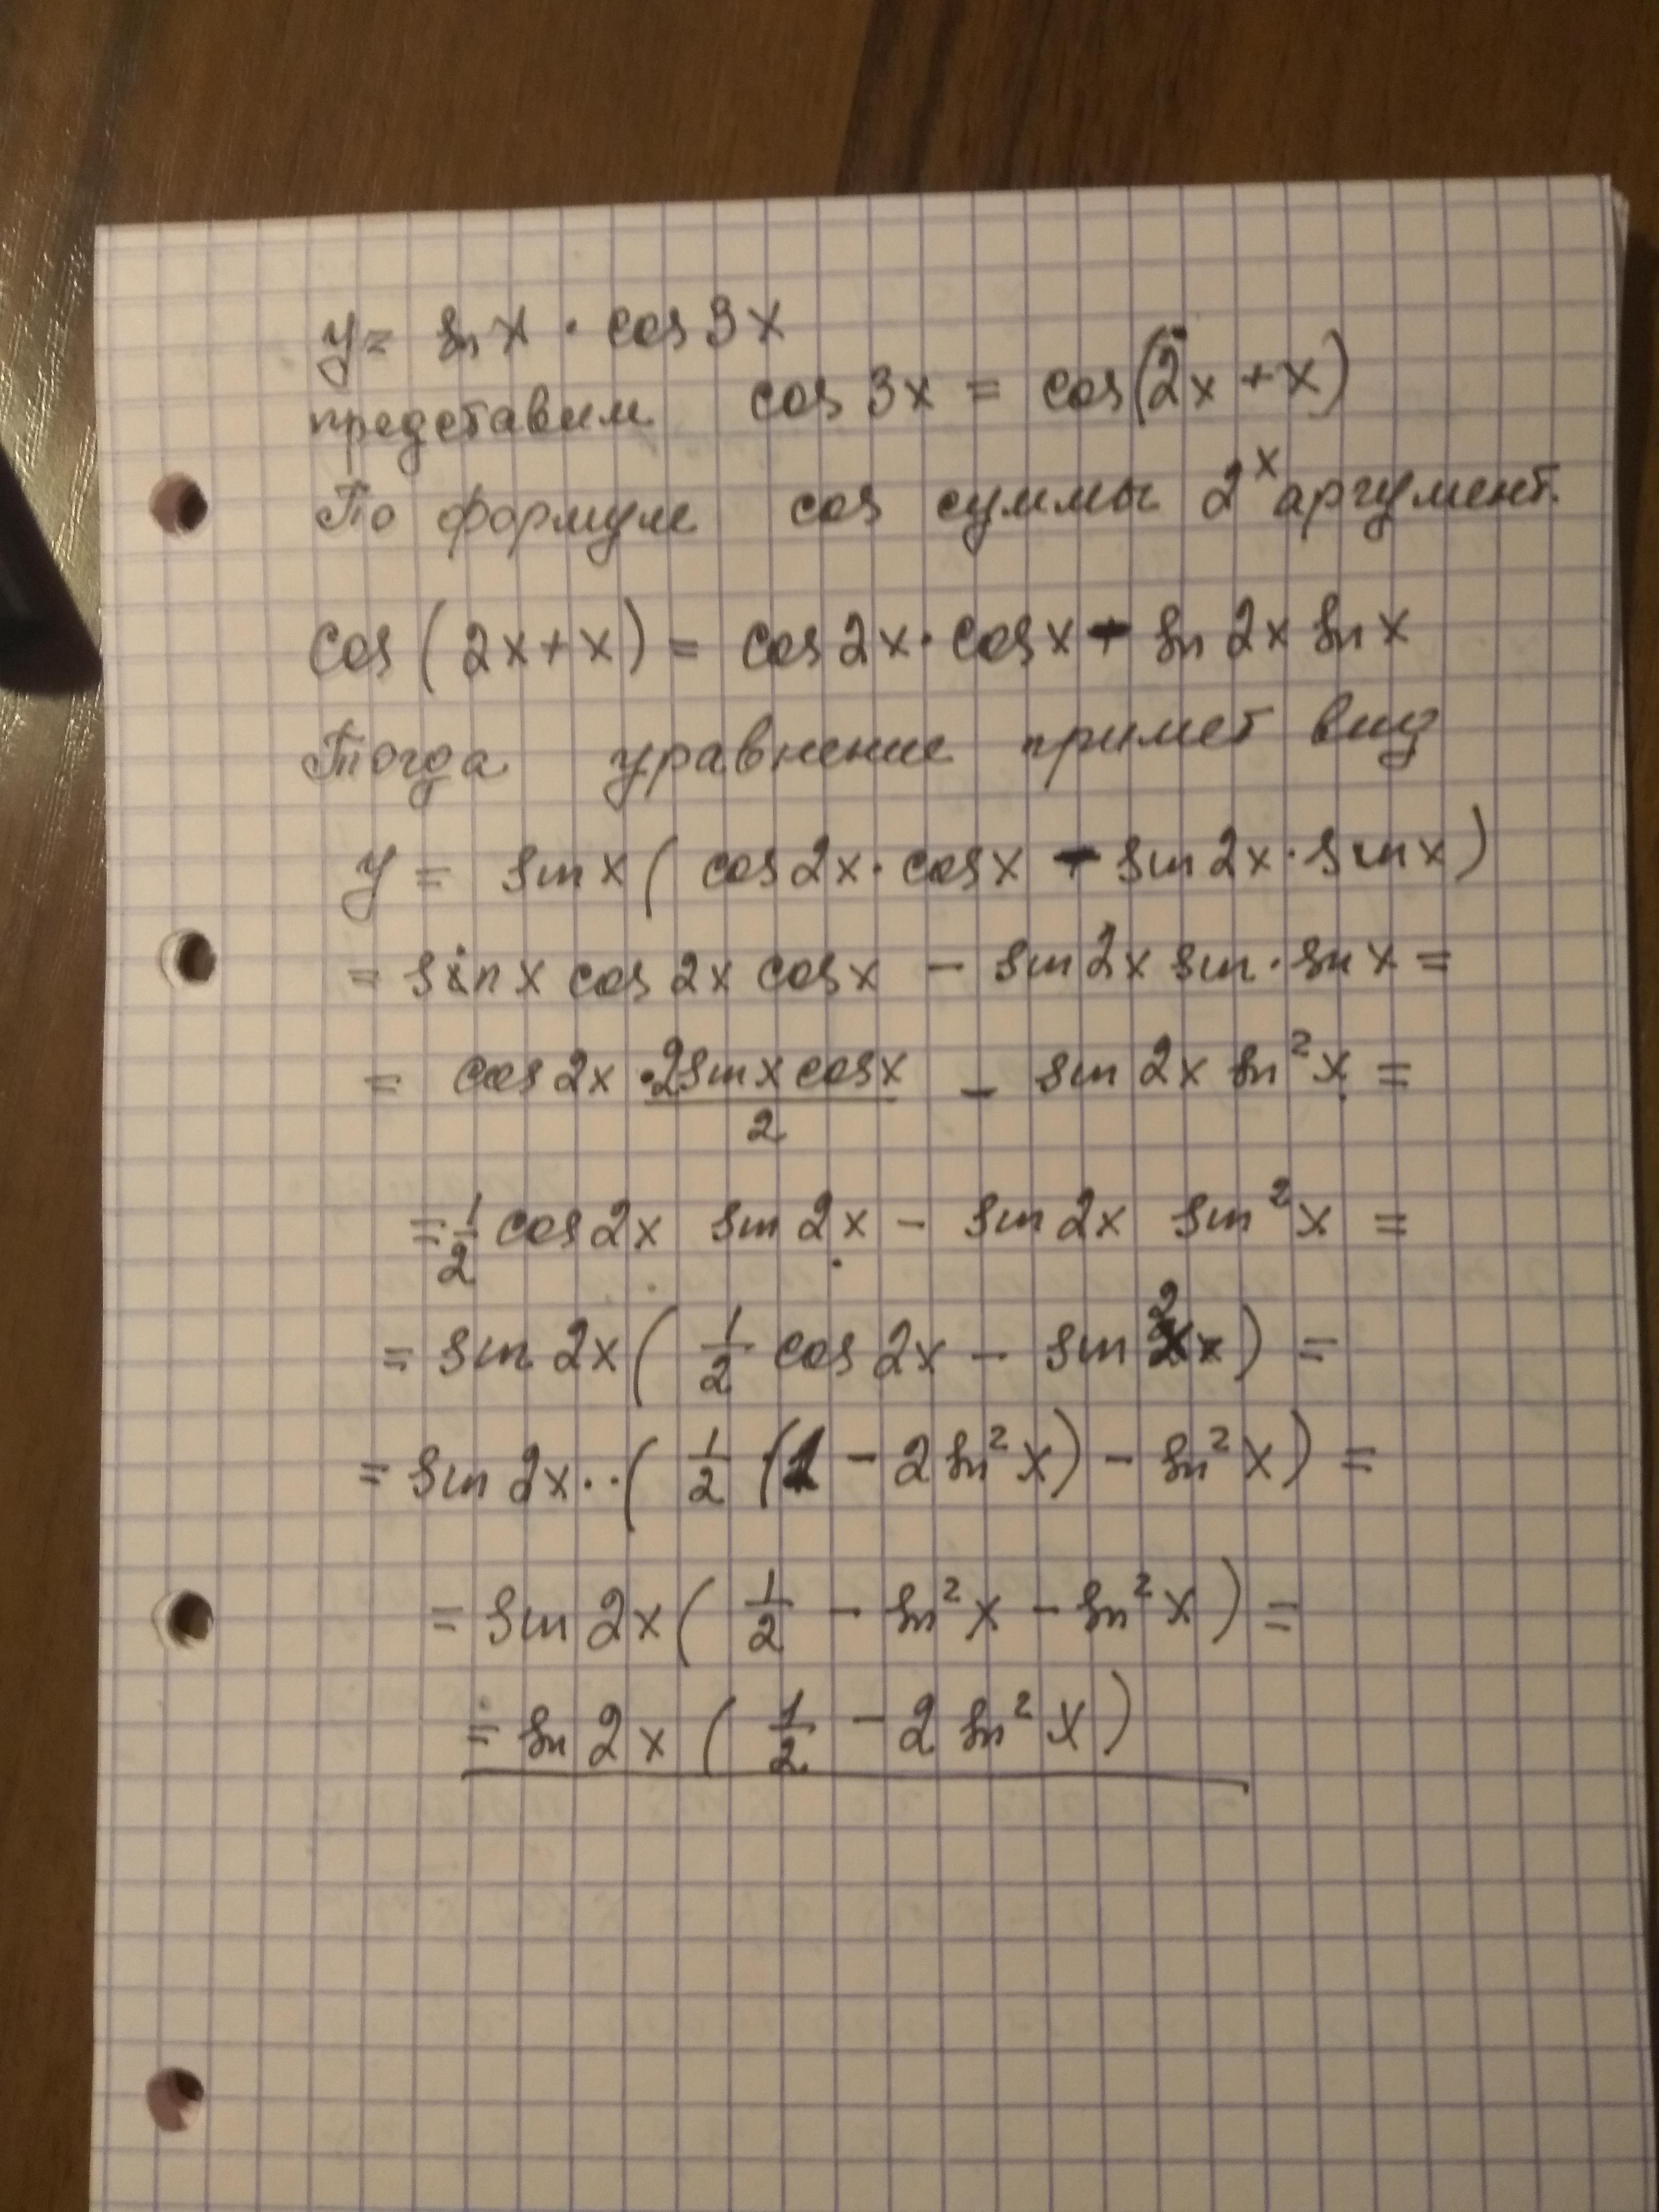 y = sn x · cos 3x
представим cos 3x = cos(2x + x)
По формуле cos суммы 2^x аргумент.
cos (2x + x) = cos 2x · cos x - sn 2x sn x
Тогда уравнение примет вид
y = sin x ( cos 2x · cos x - sin 2x · sin x )
= sin x cos 2x cos x - sin 2x sin · sn x =
= cos 2x · 2 sin x cos x / 2 - sin 2x sn² x =
= 1/2 cos 2x sin 2x - sin 2x sin² x =
= sin 2x ( 1/2 cos 2x - sin² x ) =
= sin 2x · · ( 1/2 (1 - 2 sn² x ) - sn² x ) =
= sin 2x ( 1/2 - sn² x - sn² x ) =
= sn 2x ( 1/2 - 2 sn² x )